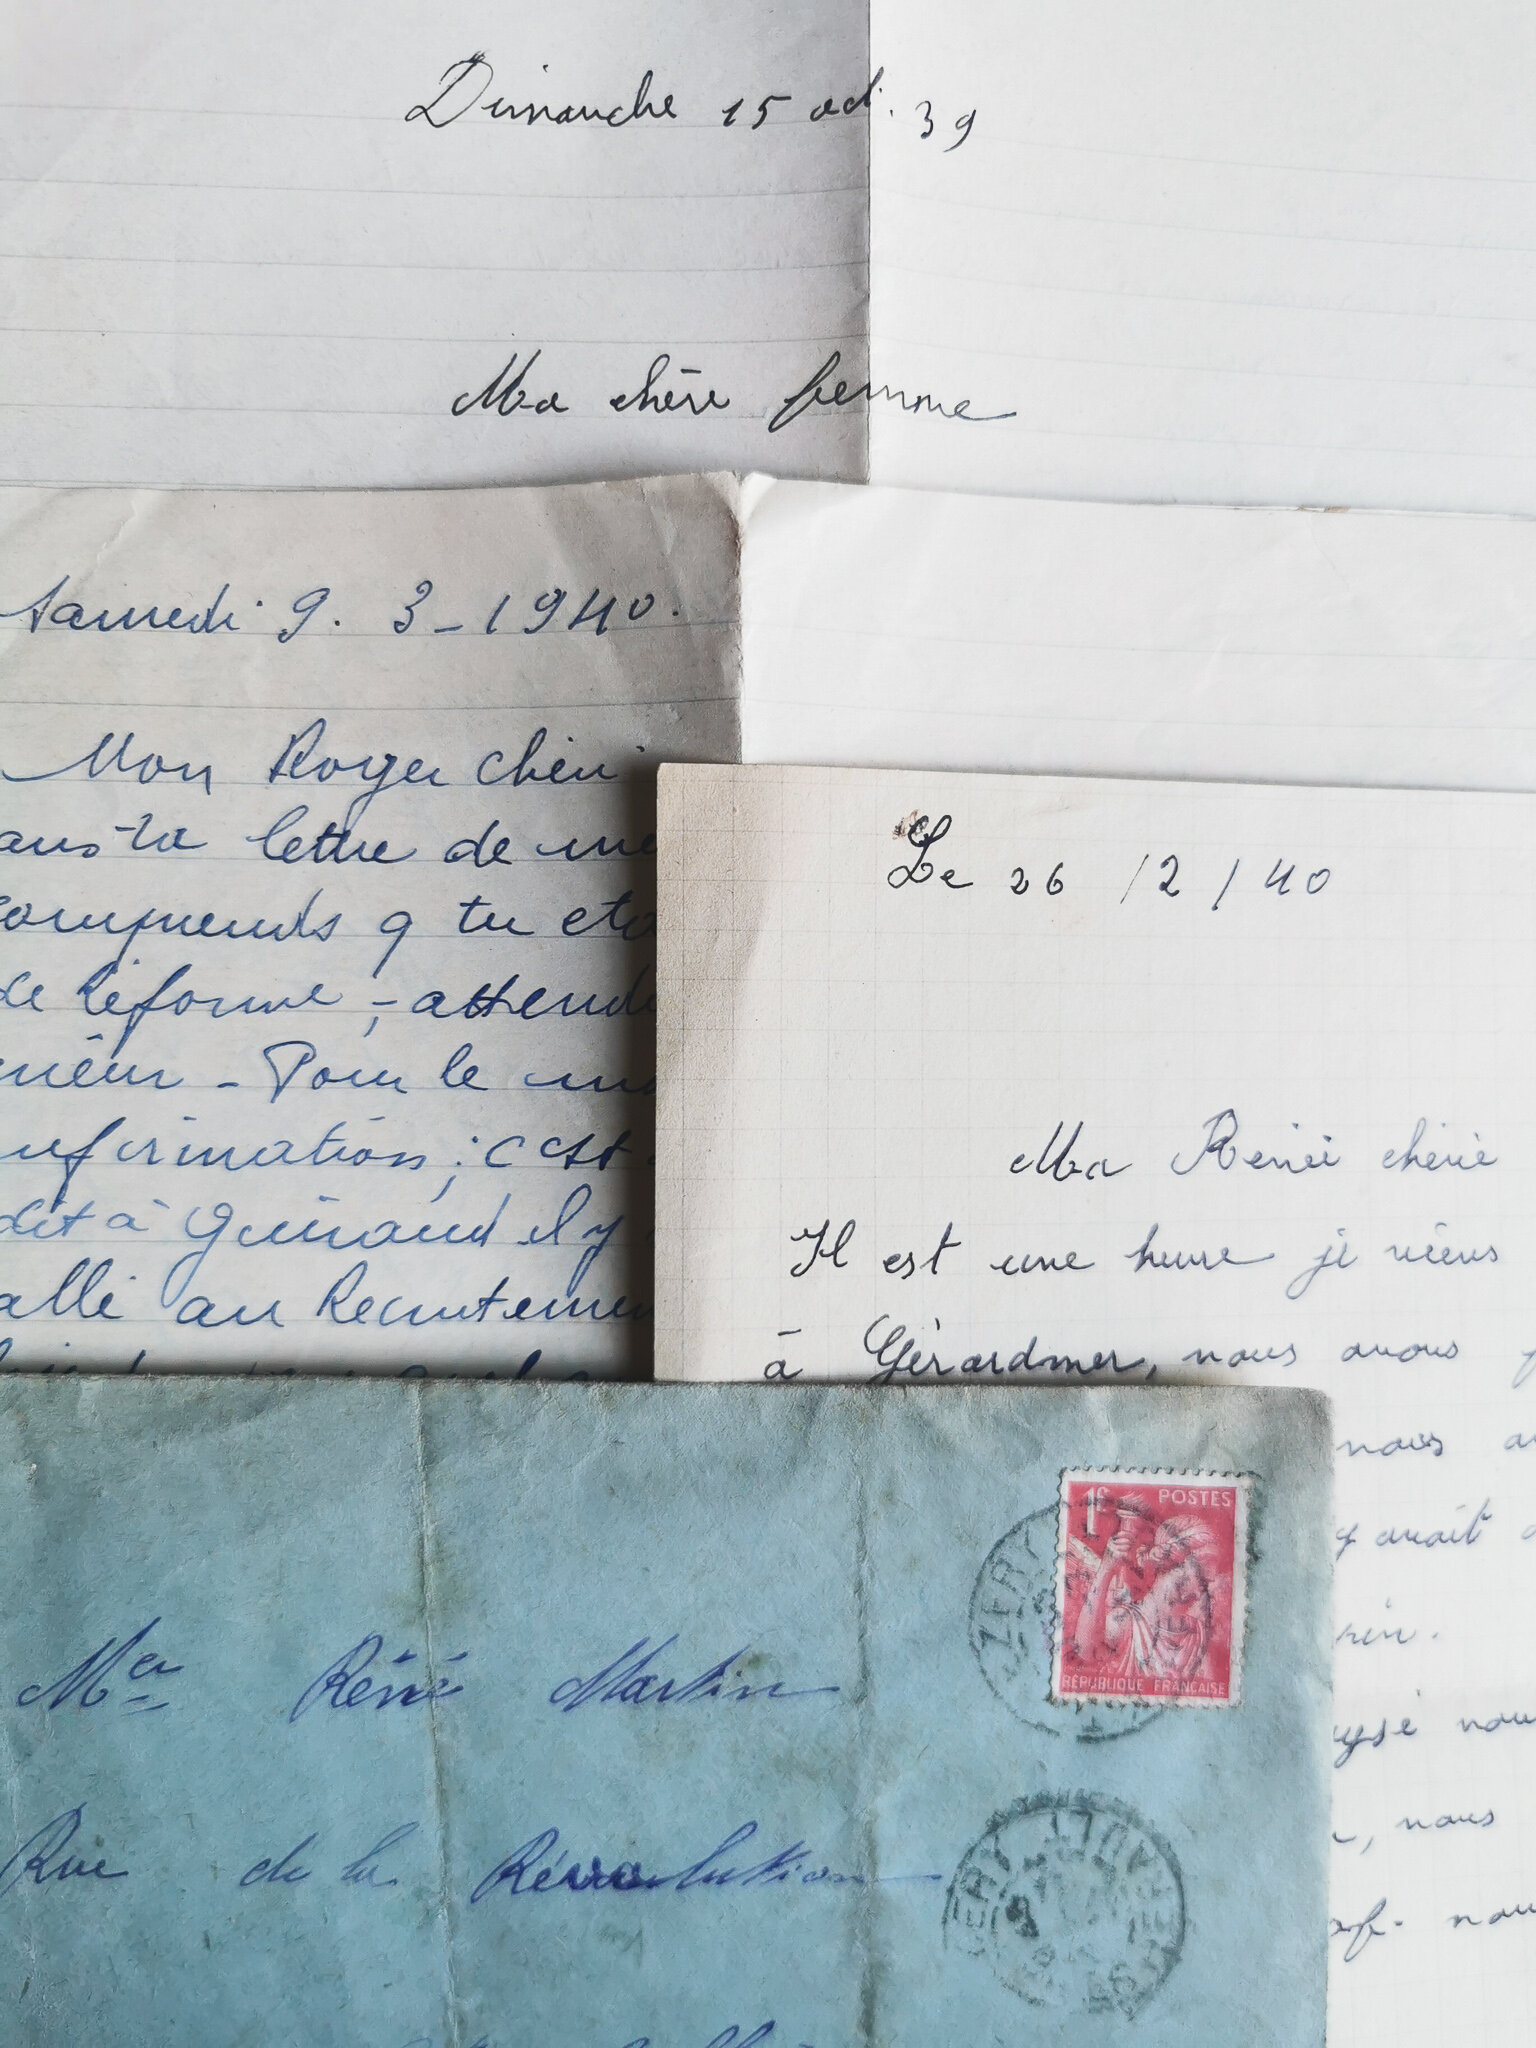 Dimanche 15 oct. 39
Ma chère femme
Samedi 9. 3 - 1940.
Mon Roger chéri
lettre de
comprends q tu
de Réforme, - attend
rieur - Pour le
information ; c est
dit à Guiraud il y
allé au Recrutemen
Le 26 / 2 / 40
Ma Renée chérie
Il est une heure je viens
à Gérardmer, nous avons
nous
y avait
nous
nous
Mer Réné Martin
Rue de la Révolution
1F POSTES
RÉPUBLIQUE FRANÇAISE